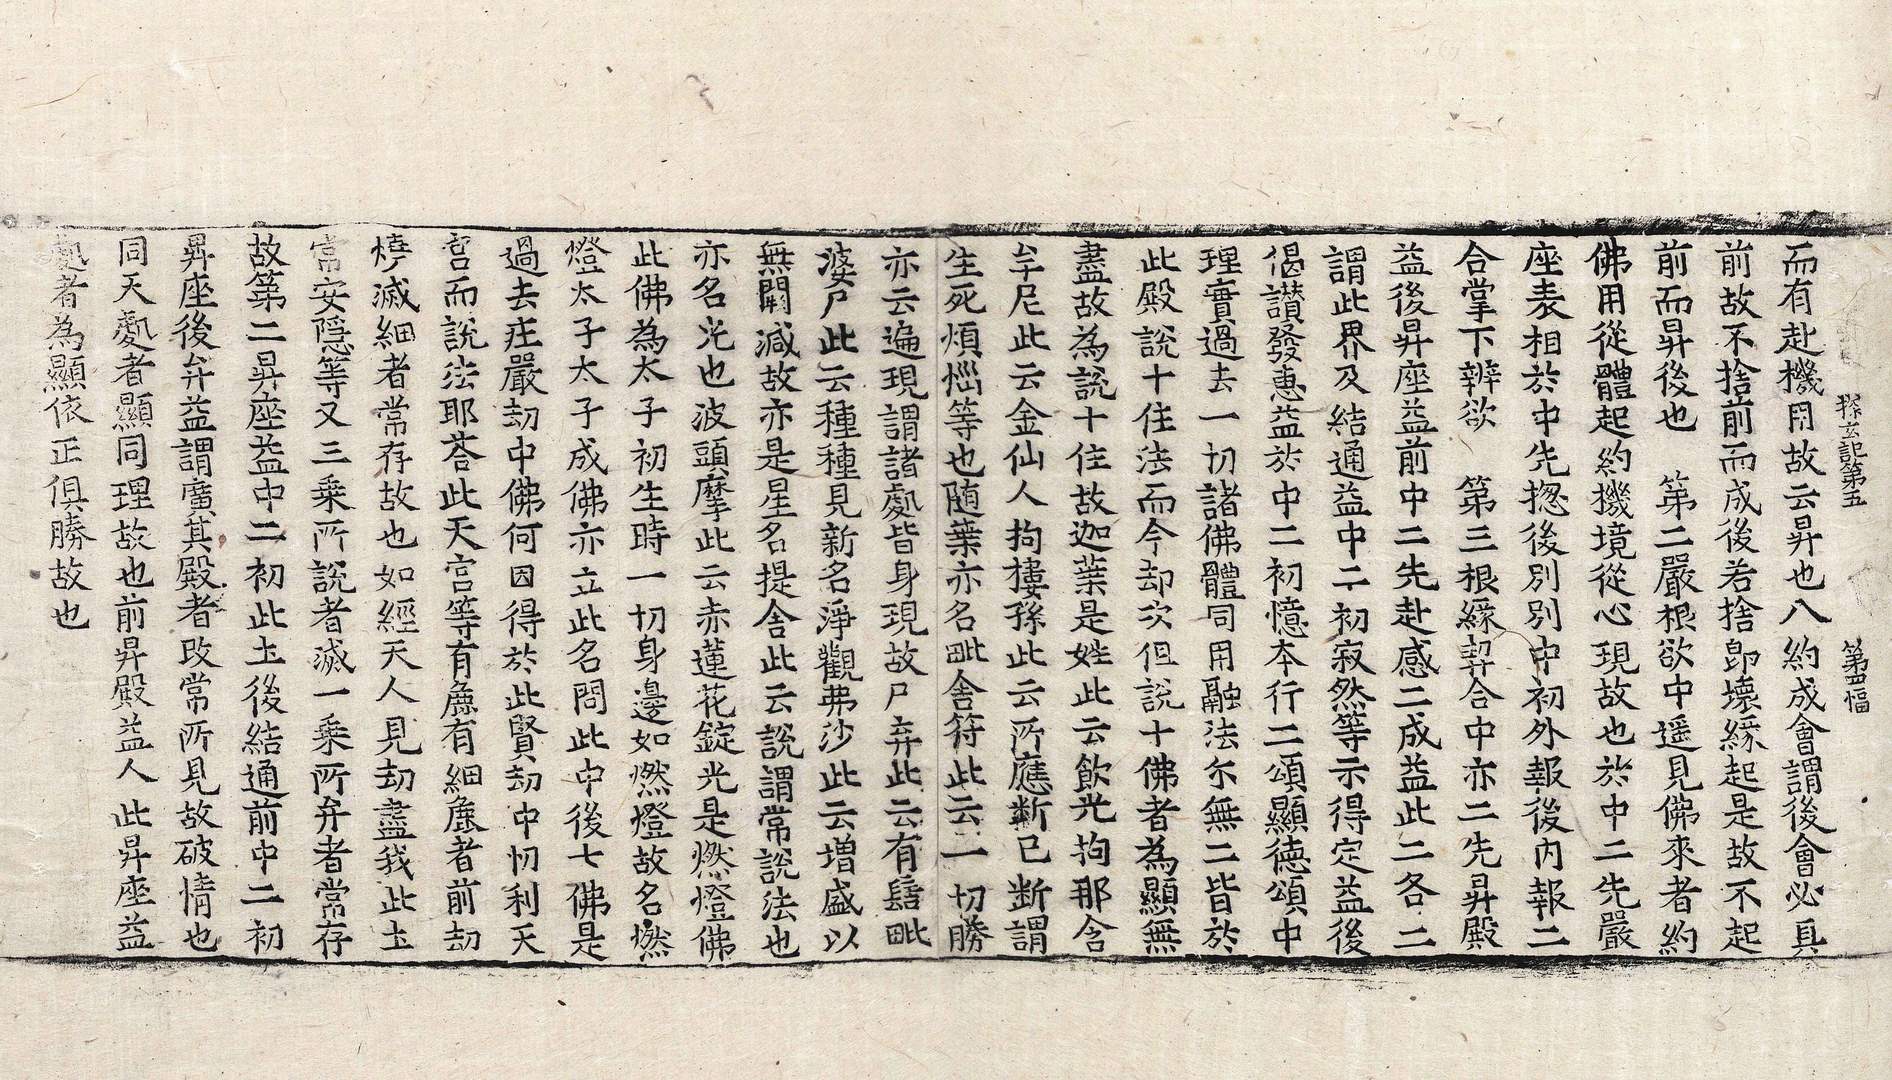 探玄記第五　第四幅
而有赴機用故云昇也八約成會謂後會必具
前故不捨前而成後若捨即壞緣起是故不起
前而昇後也　第二嚴根欲中遥見佛來者約
佛用從體起約機境從心現故也於中二先嚴
座表相於中先揔後別別中初外報後內報二
合掌下辨欲　第三根緣契合中亦二先昇殿
益後昇座益前中二先赴感二成益此二各二
謂此界及結通益中二初寂然等示得定益後
偈讃發惠益於中二初憶本行二頌顯德頌中
理實過去一切諸佛體同用融法尓無二皆於
此殿說十住法而今却次但說十佛者為顯無
盡故為說十住故迦葉是姓此云飲光拘那含
牟尼此云金仙人拘摟孫此云所應斷已斷謂
生死煩惱等也隨葉亦名毗舍符此云一切勝
亦云遍現謂諸處皆身現故尸弃此云有髻毗
婆尸此云種種見新名淨觀弗沙此云增盛以
無闕減故亦是星名提舍此云說謂常說法也
亦名光也波頭摩此云赤蓮花錠光是燃燈佛
此佛為太子初生時一切身邊如燃燈故名燃
燈太子太子成佛亦立此名問此中後七佛是
過去莊嚴劫中佛何因得於此賢劫中忉利天
宮而說法耶荅此天宮等有麁有細麁者前劫
燒滅細者常存故也如經天人見劫盡我此土
常安隱等又三乘所說者滅一乘所弁者常存
故第二昇座益中二初此土後結通前中二初
昇座後弁益謂廣其殿者改常所見故破情也
同天處者顯同理故也前昇殿益人此昇座益
處者為顯依正俱勝故也